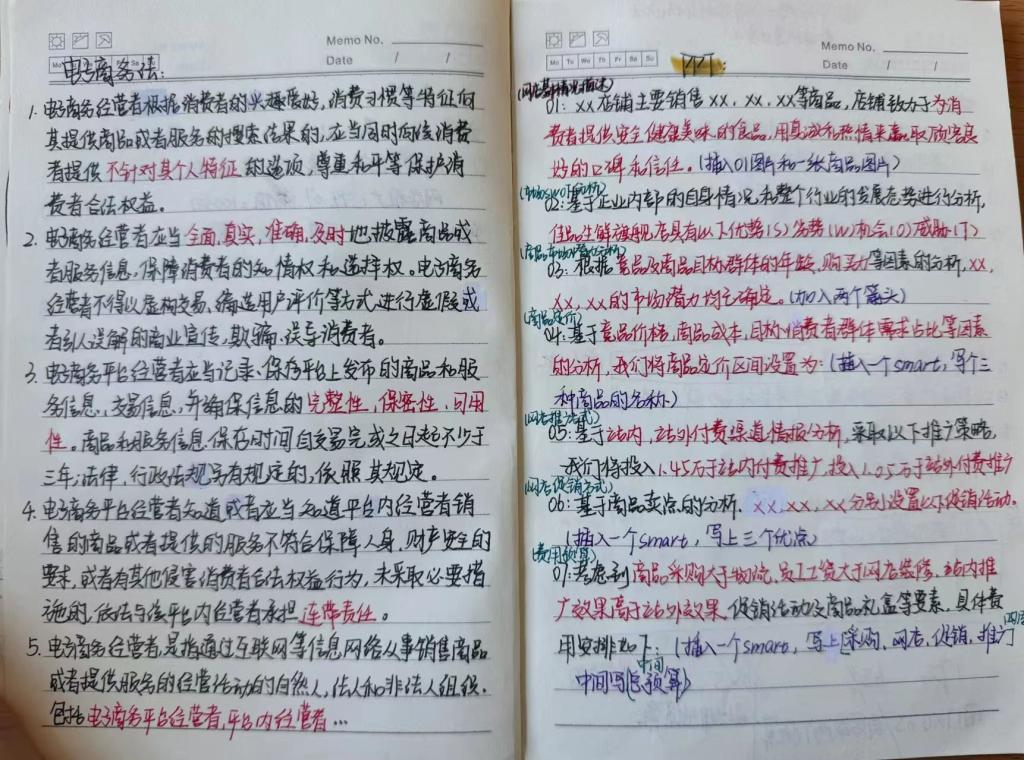 Memo No.
Mo Sa Su
Date / /
电子商务法:
1. 电子商务经营者根据消费者的兴趣爱好,消费习惯等特征向
其提供商品或者服务的搜索结果的,应当同时向该消费
者提供不针对其个人特征的选项,尊重和平等保护消
费者合法权益。
2. 电子商务经营者应当全面,真实,准确,及时地披露商品或
者服务信息,保障消费者的知情权和选择权。电子商务
经营者不得以虚构交易、编造用户评价等方式进行虚假或
者引人误解的商业宣传,欺骗、误导消费者。
3. 电子商务平台经营者应当记录、保存平台上发布的商品和服
务信息,交易信息,并确保信息的完整性,保密性,可用
性。商品和服务信息保存时间自交易完成之日起不少于
三年;法律,行政法规另有规定的,依照其规定。
4. 电子商务平台经营者知道或者应当知道平台内经营者销
售的商品或者提供的服务不符合保障人身,财产安全的
要求,或者有其他侵害消费者合法权益行为,未采取必要措
施的,依法与该平台内经营者承担连带责任。
5. 电子商务经营者,是指通过互联网等信息网络从事销售商品
或者提供服务的经营活动的自然人,法人和非法人组织.
包括电子商务平台经营者,平台内经营者…
Memo No.
Mo Tu We Th Fr Sa Su
Date / /
(网店基本情况描述)
01: xx店铺主要销售xx,xx,xx等商品,店铺致力于为消
费者提供安全健康美味的食品,用真诚和热情来赢取顾客良
好的口碑和信任。(插入01图片和一张商品图片)
(市场SWOT分析)
02:基于企业内部的自身情况和整个行业的发展态势进行分析,
佳品生鲜旗舰店具有以下优势(S)劣势(W)机会(O)威胁(T)
(商品市场潜力分析)
03: 根据竞品及商品目标群体的年龄,购买力等因素的分析,xx,
xx,xx的市场潜力均已确定。(加入两个箭头)
(商品定价)
04: 基于竞品价格,商品成本,目标消费者群体需求占比等因素
的分析,我们将商品定价区间设置为:(插入一个smart,写个三
种商品的名称)
(网店推广方式)
05: 基于站内,站外付费渠道情报分析,采取以下推广策略,
我们将投入1.45万于站内付费推广,投入1.05万于站外付费推广
(网店促销方式)
06: 基于商品卖点的分析,xx,xx,xx分别设置以下促销活动.
(插入一个smart,写上三个优点)
(费用预算)
07: 考虑到商品采购大于物流,员工工资大于网店装修,站内推
广效果高于站外效果,促销活动及商品礼盒等要素,具体费
用安排如下:(插入一个smart,写上[采购、网店、促销、推广
中间写(总预算)